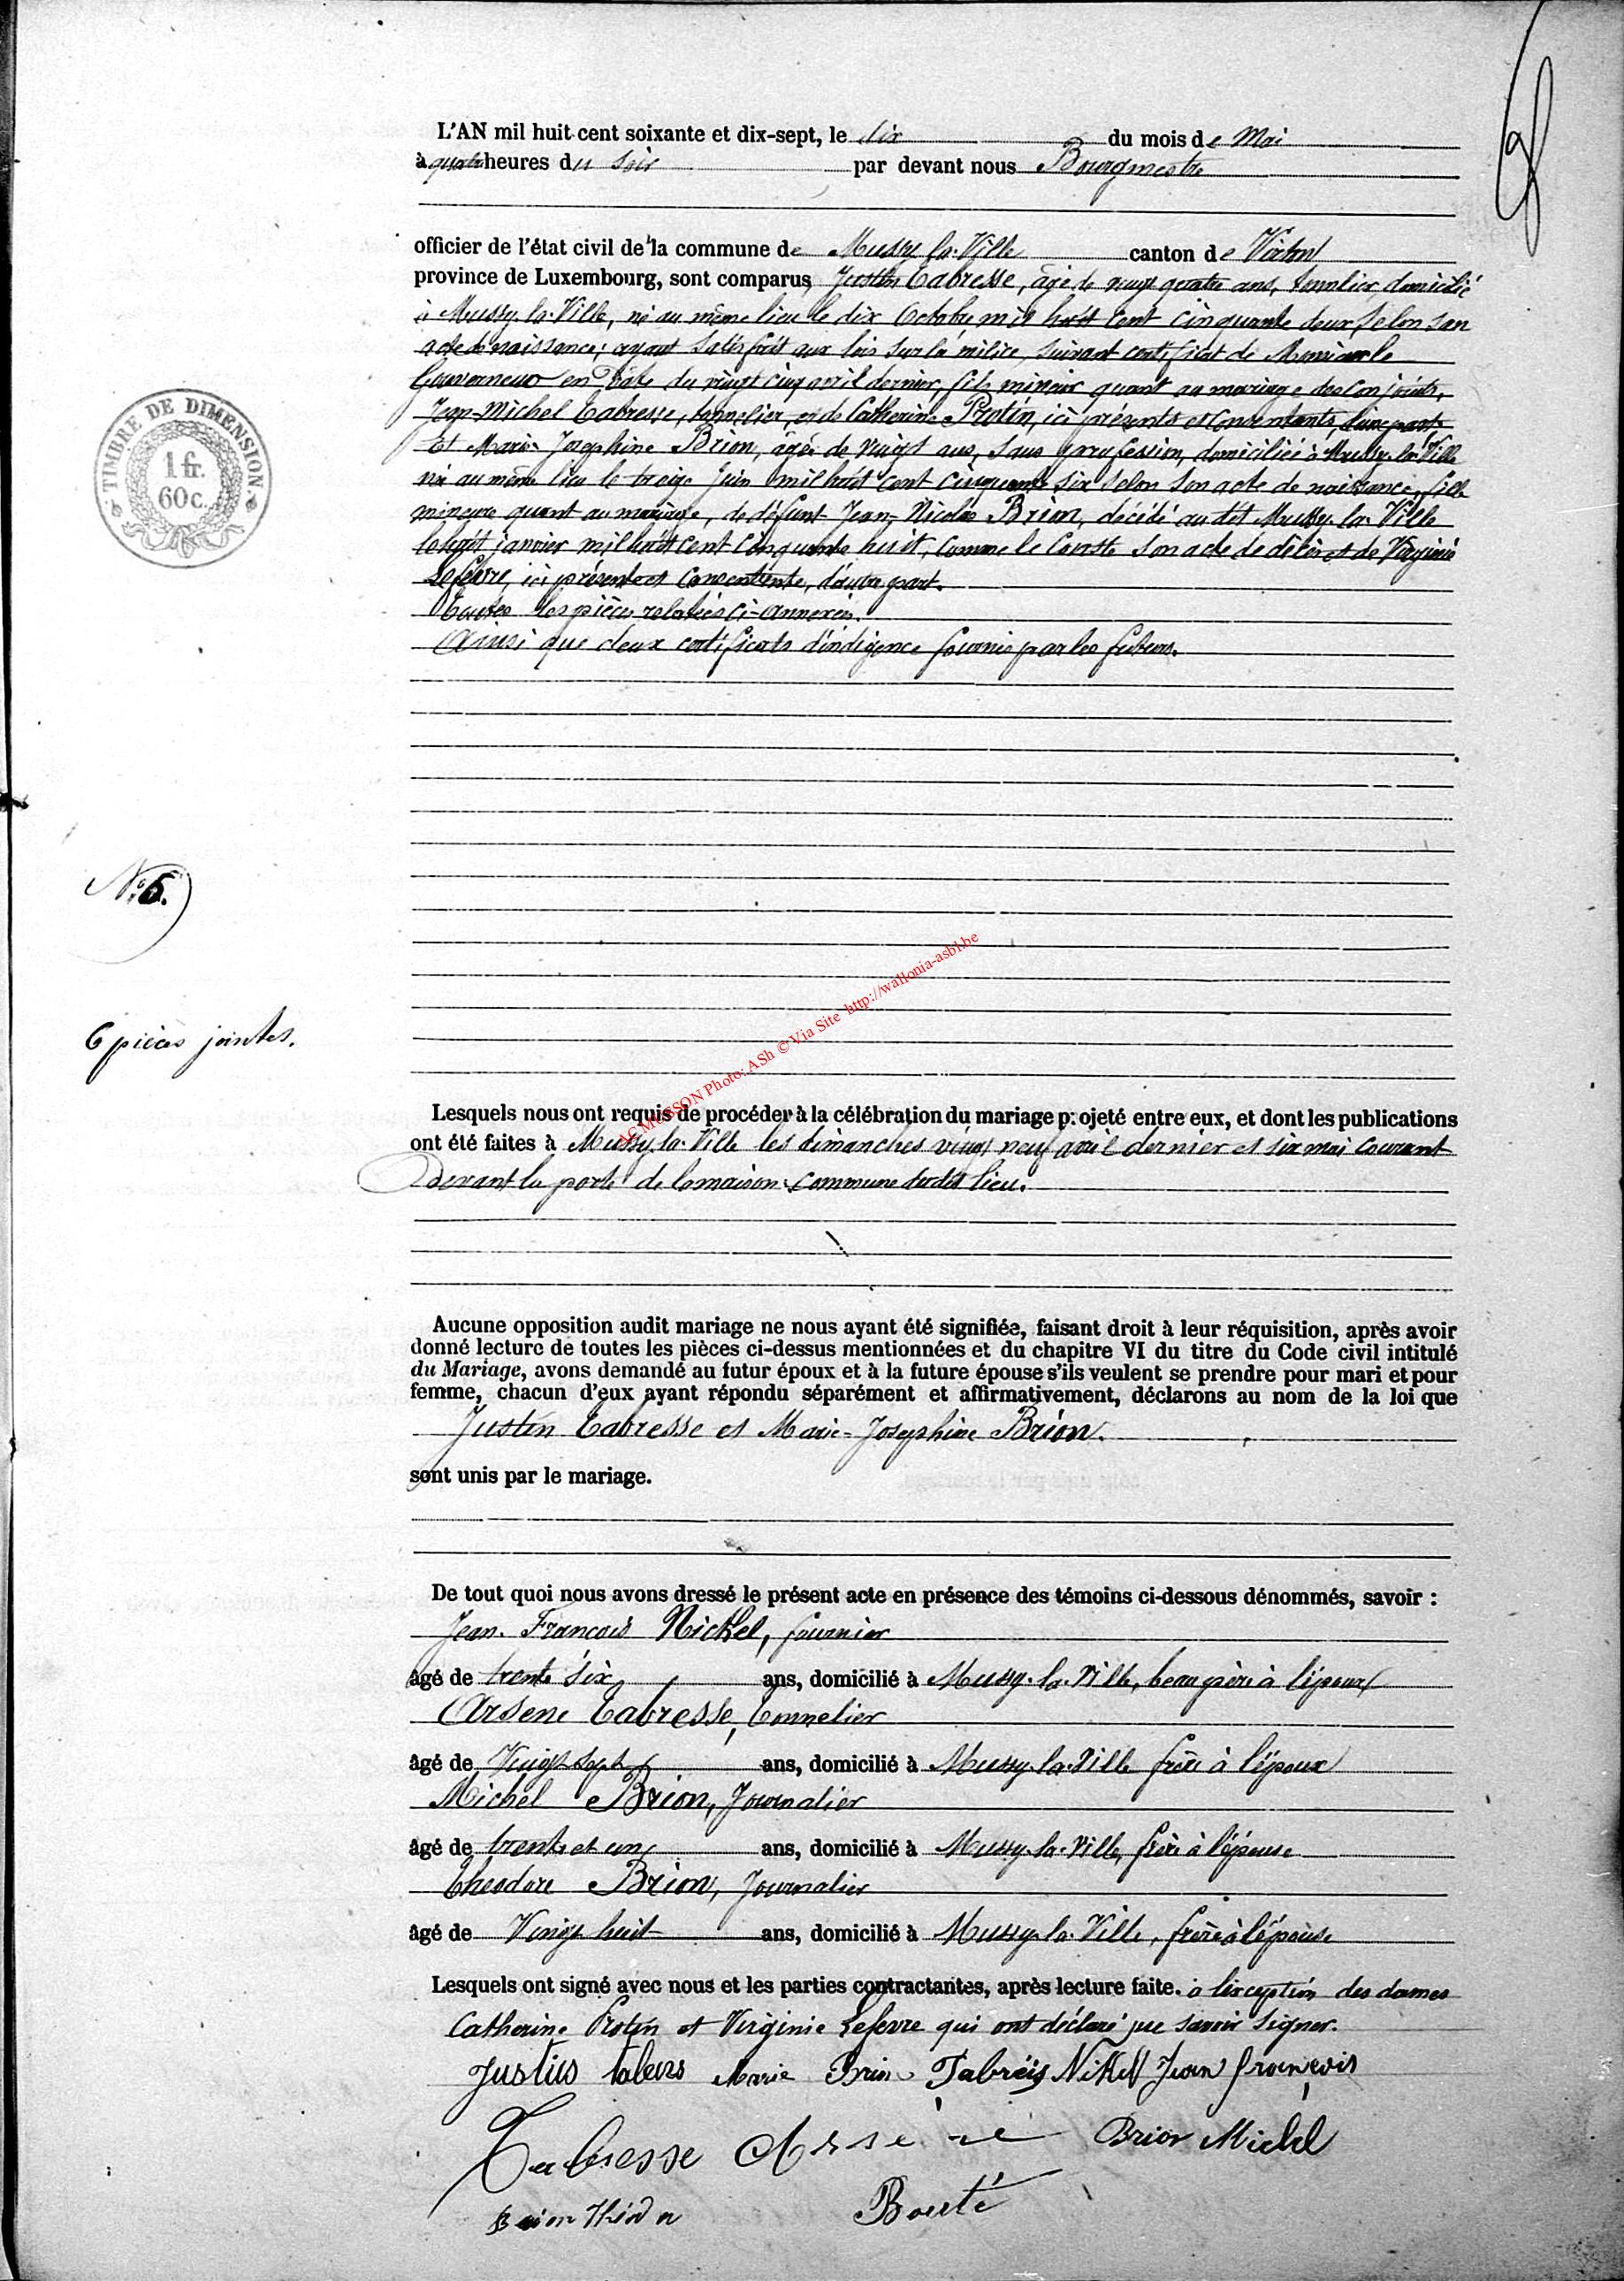 L'AN mil huit cent soixante et dix-sept, le dix du mois de Mai
à quatre heures du soir par devant nous Bourgmestre
officier de l'état civil de la commune de Mussy-la-Ville canton de Virton
province de Luxembourg, sont comparus, Justin Tabresse, âgé de vingt quatre ans, tonnelier, domicilié
à Mussy-la-Ville, né au même lieu le dix Octobre mil huit cent cinquante deux selon son
acte de naissance; ayant satisfait aux lois sur la milice, suivant certificat de Monsieur le
Gouverneur en date du vingt cinq avril dernier, fils mineur quant au mariage des conjoints,
Jean-Michel Tabresse, tonnelier, et de Catherine Protin, ici présents et consentants, d'une part
Et Marie Josephine Brion, âgée de vingt ans, sans profession, domiciliée à Mussy-la-Ville
née au même lieu le treize Juin mil huit cent cinquante six selon son acte de naissance, fille
mineure quant au mariage, de défunt Jean-Nicolas Brion, décédé audit Mussy-la-Ville
le huit janvier mil huit cent cinquante huit, comme le constate son acte de décès et de Virginie
Lefevre, ici présente et consentente, d'autre part.
Toutes les pièces relatées ci-annexées.
Ainsi que deux certificats d'indigence fournis par les futurs.
TIMBRE DE DIMENSION.
1 fr.
60 c.
N° 6.
6 pièces jointes.
AC MUSSON Photo: ASh © Via Site http://wallonia-asbl.be
Lesquels nous ont requis de procéder à la célébration du mariage projeté entre eux, et dont les publications
ont été faites à Mussy-la-Ville les dimanches vingt neuf avril dernier et six mai courant
Devant la porte de la maison commune dudit lieu.
Aucune opposition audit mariage ne nous ayant été signifiée, faisant droit à leur réquisition, après avoir
donné lecture de toutes les pièces ci-dessus mentionnées et du chapitre VI du titre du Code civil intitulé
du Mariage, avons demandé au futur époux et à la future épouse s'ils veulent se prendre pour mari et pour
femme, chacun d'eux ayant répondu séparément et affirmativement, déclarons au nom de la loi que
Justin Tabresse et Marie-Josephine Brion.
sont unis par le mariage.
De tout quoi nous avons dressé le présent acte en présence des témoins ci-dessous dénommés, savoir :
Jean-François Nickel, fournier
âgé de trente six ans, domicilié à Mussy-la-Ville, beau père à l'époux
Arsene Tabresse, Tonnelier
âgé de Vingt sept ans, domicilié à Mussy-la-Ville frère à l'époux
Michel Brion, Journalier
âgé de trente et un ans, domicilié à Mussy-la-Ville, frère à l'épouse
Theodore Brion, Journalier
âgé de Vingt huit ans, domicilié à Mussy-la-Ville, frère à l'épouse
Lesquels ont signé avec nous et les parties contractantes, après lecture faite. à l'exception des dames
Catherine Protin et Virginie Lefevre qui ont déclaré ne savoir signer.
Marie Brion Nikel Jean francois
Tabresse Arsene Brion Michel
Brion Bouté